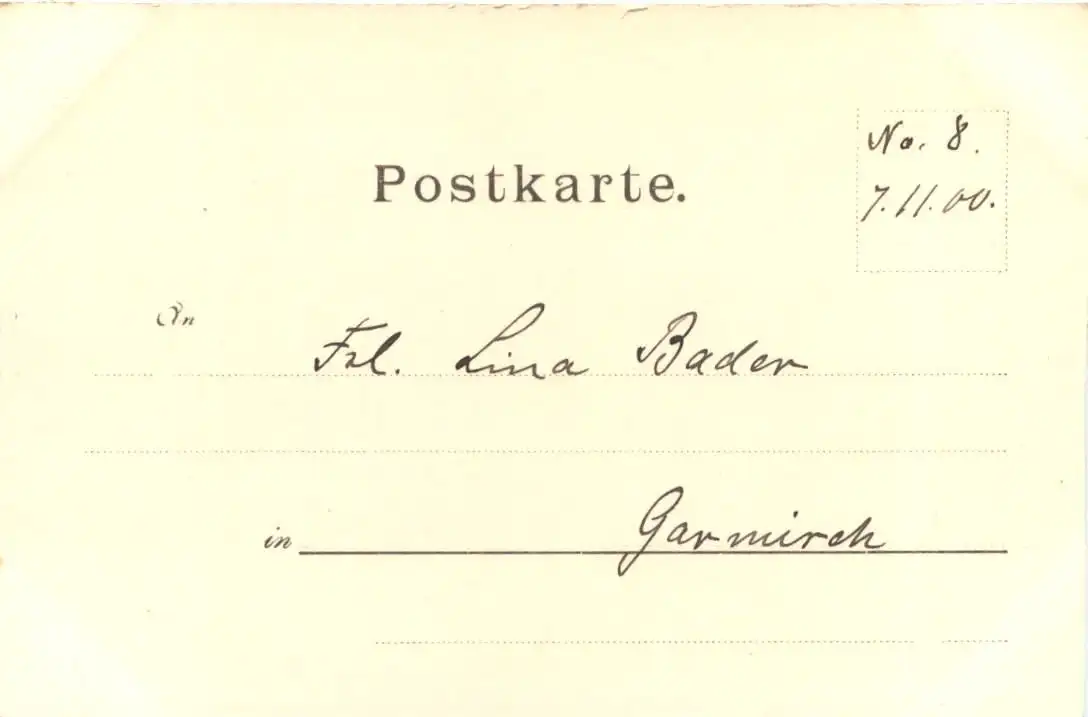 Postkarte.
No. 8.
7.11.00.
An
Frl. Lina Bader
in Garmisch